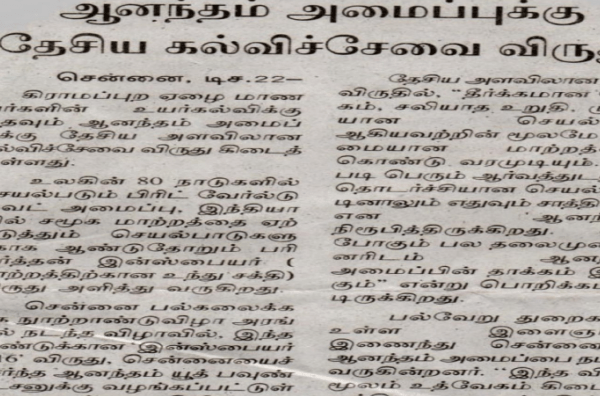 ஆனந்தம் அமைப்புக்கு
தேசிய கல்விச்சேவை விருது
சென்னை, டிச.22–
கிராமப்புற ஏழை மாண
ர்களின் உயர்கல்விக்கு
தவும் ஆனந்தம் அமைப்
க்கு தேசிய அளவிலான
ல்விச்சேவை விருது கிடைத்
ள்ளது.
உலகின் 80 நாடுகளில்
சயல்படும் பிரிட் வேர்ல்டு
வட் அமைப்பு, இந்தியா
ல் சமூக மாற்றத்தை ஏற்
டுத்தும் செயல்பாடுகளு
காக ஆண்டுதோறும் பரி
ர்த்தன் இன்ஸ்பையர் (
ாற்றத்திற்கான உந்து சக்தி)
ருது அளித்து வருகிறது.
சென்னை பல்கலைக்க
நூற்றாண்டுவிழா அரங்
ல் நடந்த விழாவில், இந்த
ண்டுக்கான இன்ஸ்பையர்
16 விருது, சென்னையைச்
ர்ந்த ஆனந்தம் யூத் பவுண்
டசனுக்கு வழங்கப்பட்டுள்
தேசிய அளவிலான
விருதில், "தீர்க்கமான
கம், சலியாத உறுதி,
யான செயல்
ஆகியவற்றின் மூலமே
மையான மாற்றத்
கொண்டு வரமுடியும்.
படி பெரும் ஆர்வத்துட
தொடர்ச்சியான செயல்
டினாலும் எதுவும் சாத்தி
என ஆன
நிரூபித்திருக்கிறது.
போகும் பல தலைமு
னரிடம் ஆன
அமைப்பின் தாக்கம் இ
கும்" என்று பொறிக்க
டிருக்கிறது.
பல்வேறு துறை
உள்ள இளைஞ
இணைந்து சென்னை
ஆனந்தம் அமைப்பை ந
வருகின்றனர். "இந்த வி
மூலம் உத்வேகம் கிடை